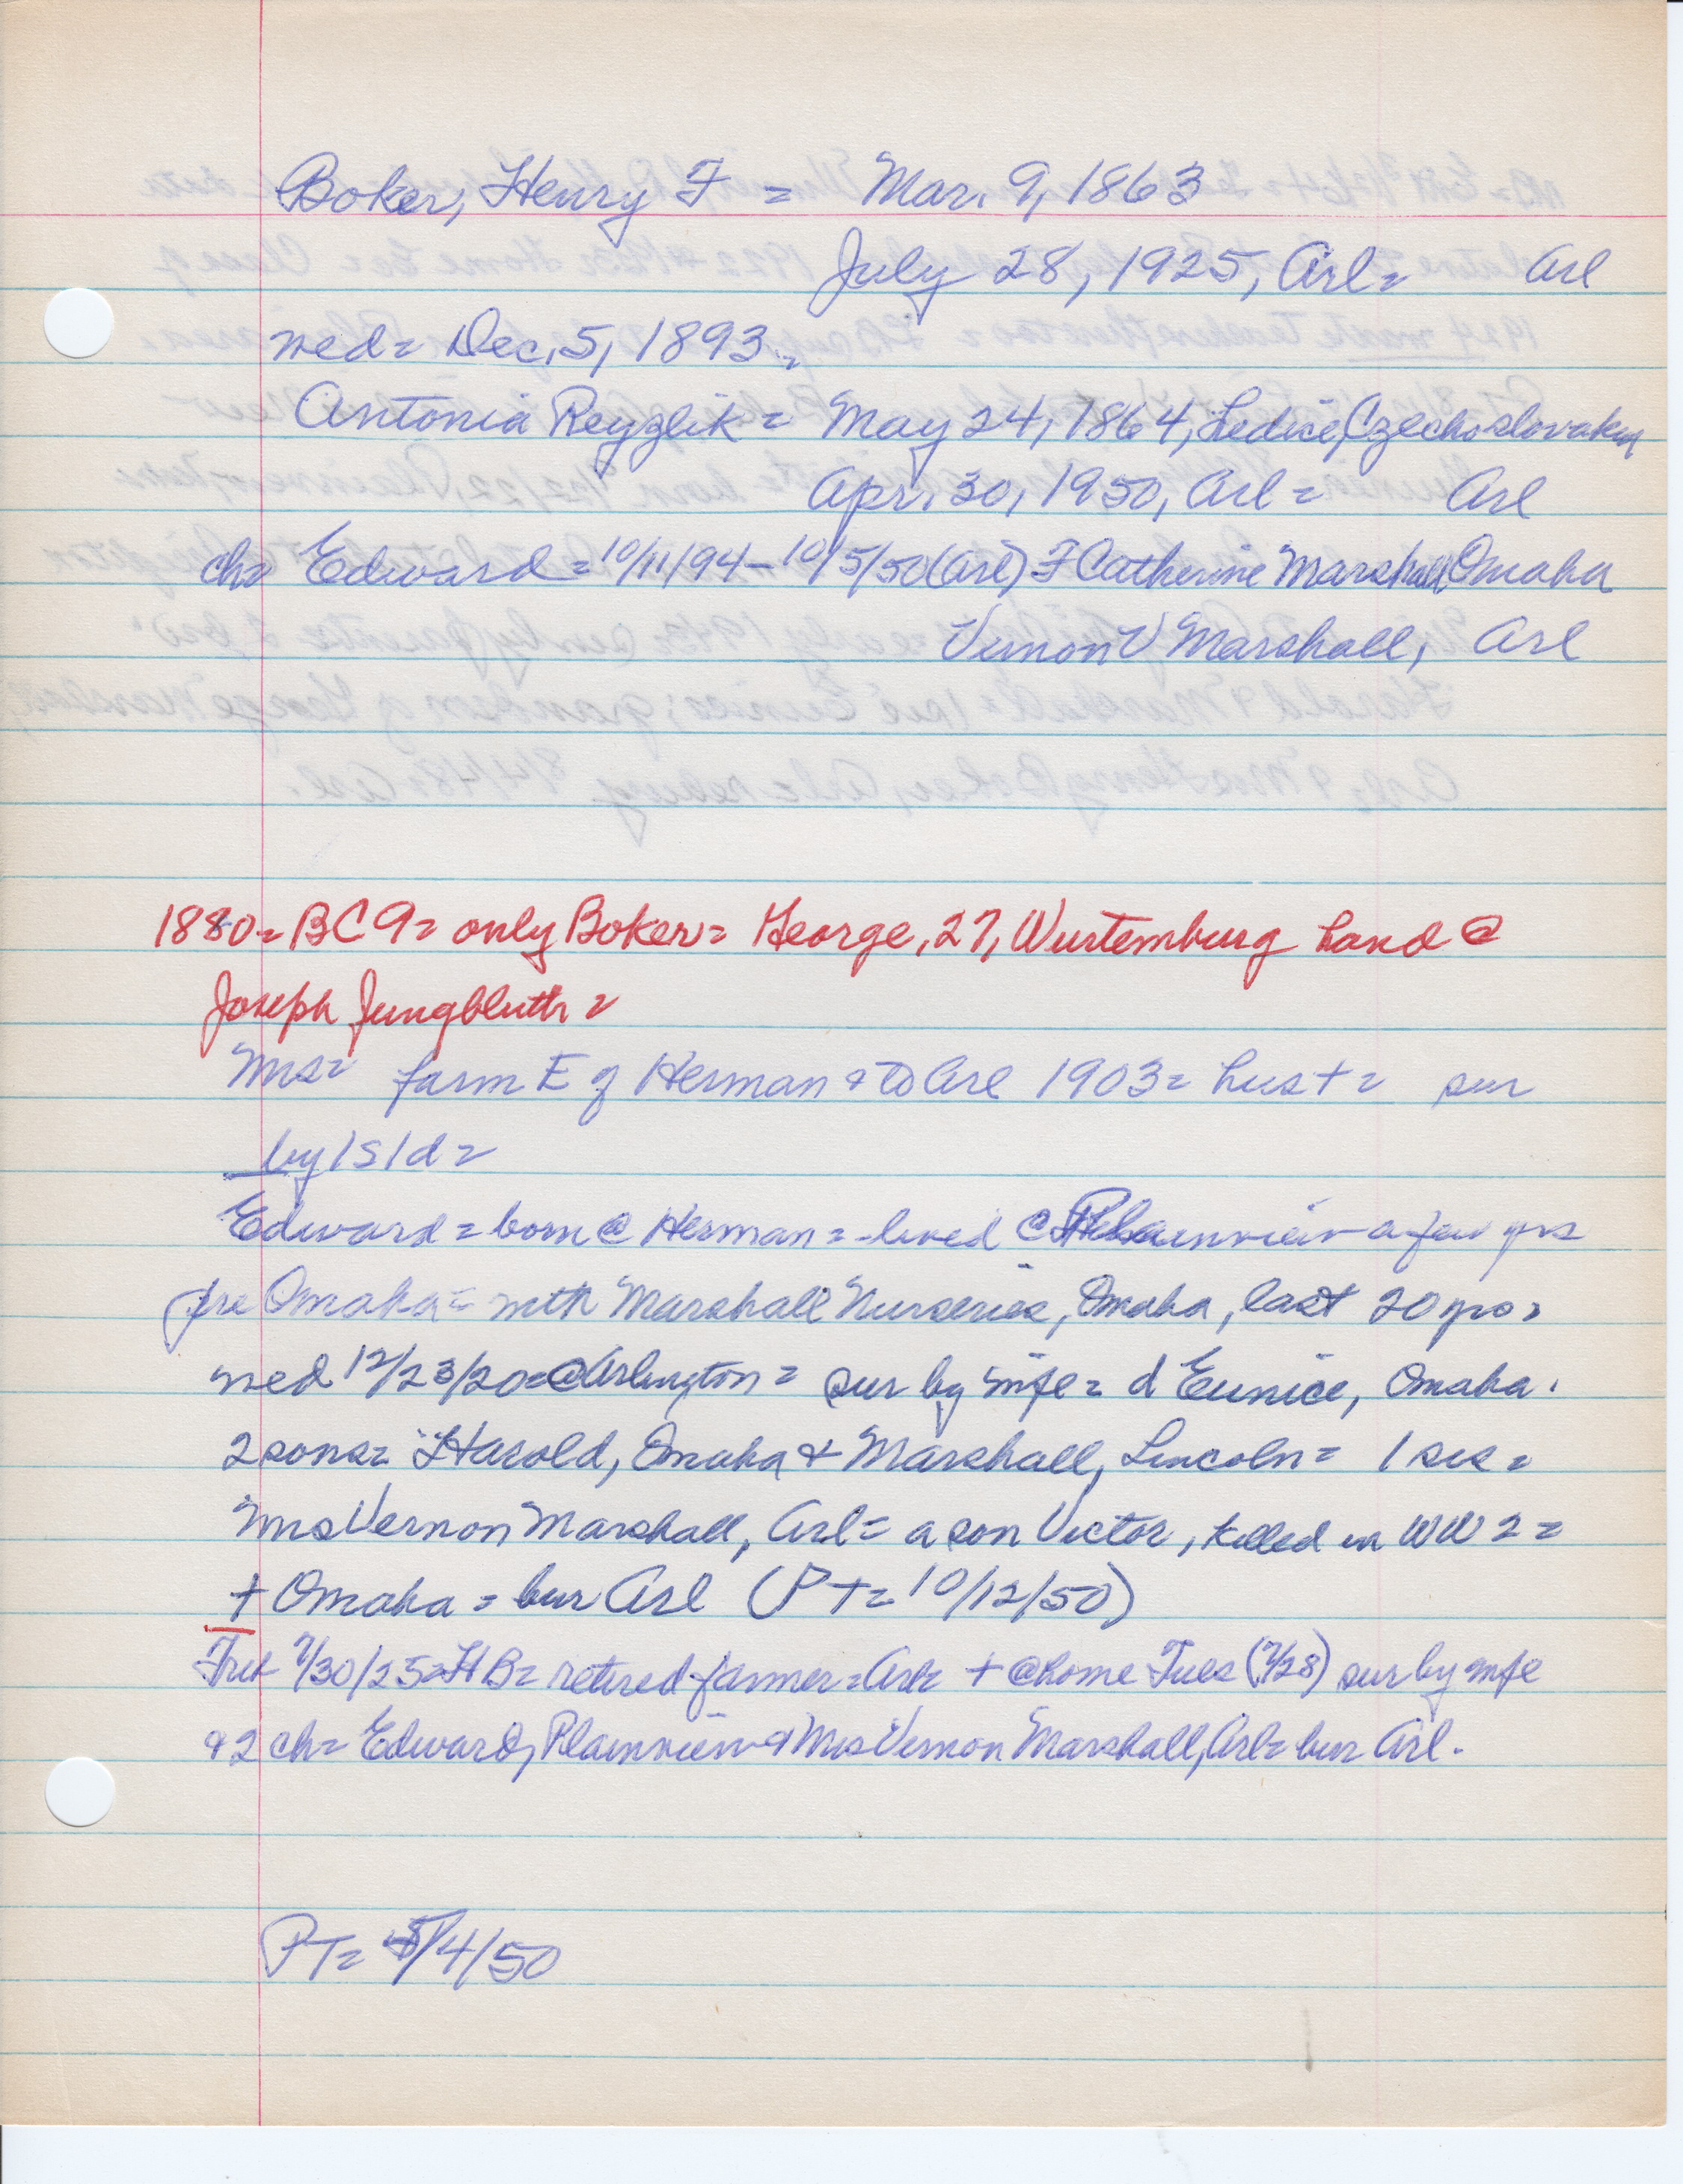 Boker, Henry F = Mar. 9, 1863
July 28, 1925, Arl = Arl
med = Dec. 5, 1893 =
Antonia Reyzlik = May 24, 1864, Ledice, Czechoslovakia
Apr. 30, 1950, Arl = Arl
ch = Edward = 10/11/94 - 10/5/50 (Arl) F Catherine Marshall Omaha
Vernon V Marshall, Arl
1880 = BC 9 = only Boker = George, 27, Wurtemburg hand @
Joseph Jungbluth =
Mrs = farm E of Herman & to Arl 1903 = hus + = sur
by 1 s 1 d =
Edward = born @ Herman = lived @ Plainview a few yrs
pre Omaha = with Marshall Nurseries, Omaha, last 20 yrs =
med 12/23/20 = @ Arlington = sur by wife = d Eunice, Omaha.
2 sons = Harold, Omaha & Marshall, Lincoln = 1 sis =
Mrs Vernon Marshall, Arl = a son Victor, killed in WW 2 =
+ Omaha = bur Arl (PT = 10/12/50)
7/30/25 = HB = retired farmer = Arl = + @ home Tues (7/28) sur by wife
& 2 ch = Edward, Plainview & Mrs Vernon Marshall, Arl = bur Arl.
PT = 5/4/50